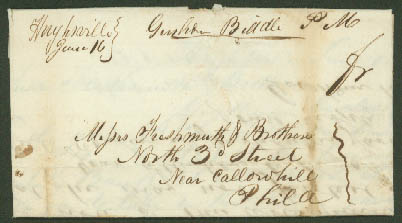 Hughsville
June 16
Gershom Biddle P M
fr
Messrs Freshmuth & Brothers
North 3d Street
Near Callowhill
Phila